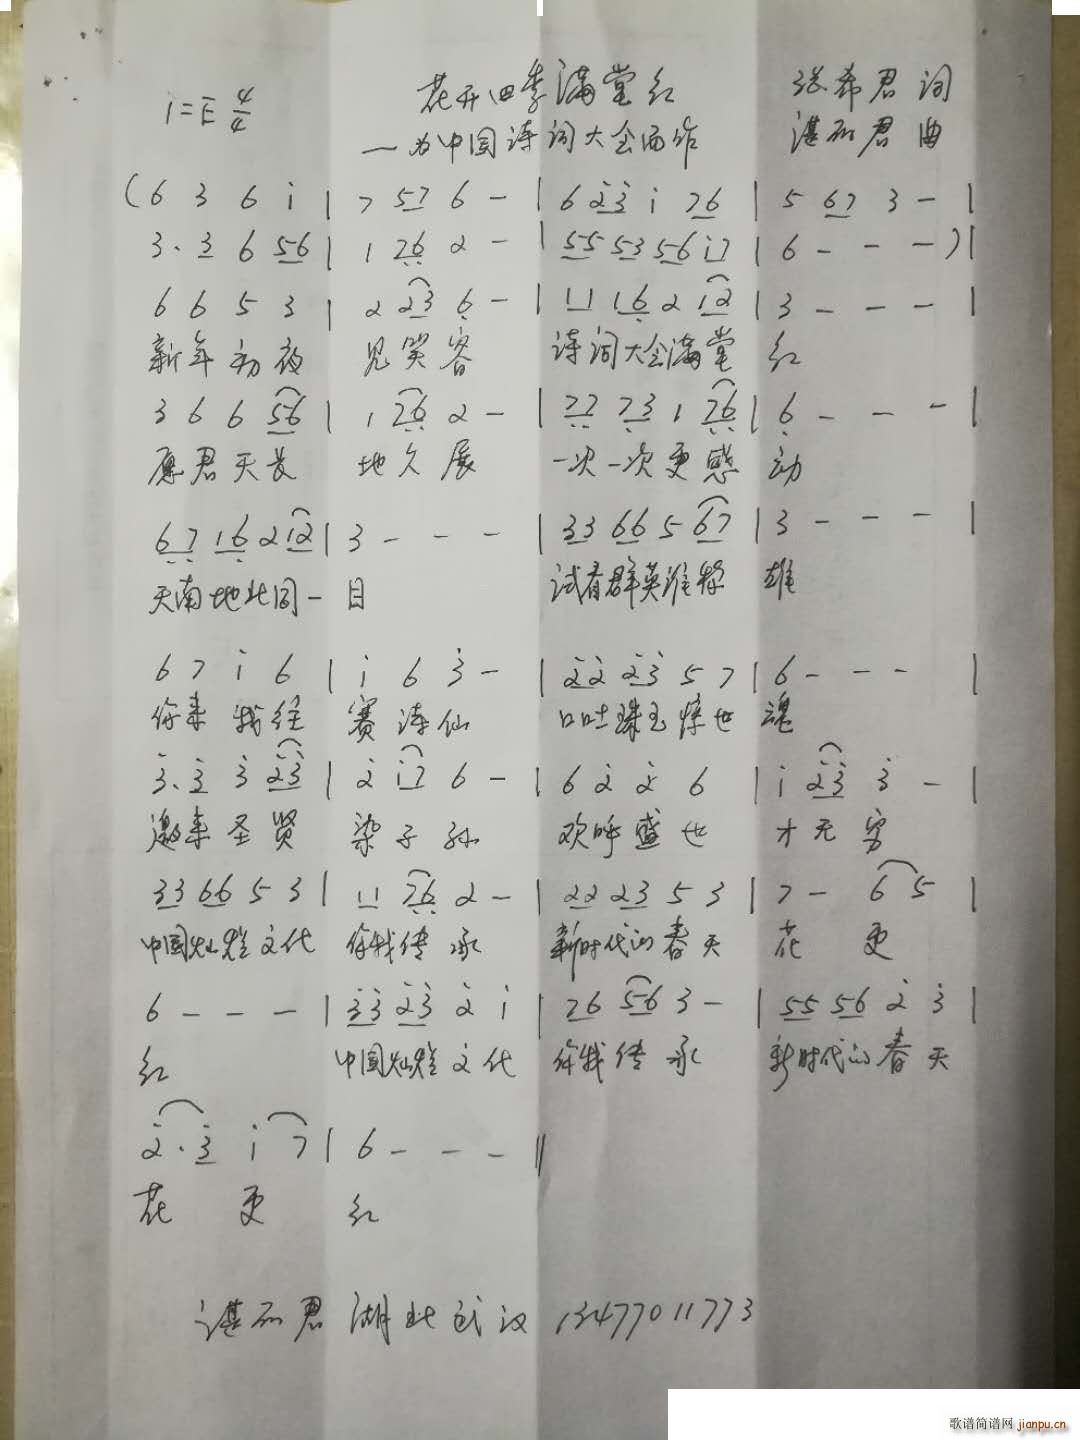 1=E 4/4 花开四季满堂红 张希君 词
—为中国诗词大会而作 谌丽君 曲
(6 3 6 i | 7 57 6 - | 6 2̇3̇ i 76 | 5 67 3 - |
3. 3 6 56 | 1 76 2 - | 55 53 56 i7 | 6 - - - )|
6 6 5 3 | 2 23 6 - | 11 16 2 12 | 3 - - - |
新年初夜 见笑容 诗词大会满堂 红
3 6 6 56 | 1 76 2 - | 77 73 1 76 | 6 - - - |
愿君天长 地久展 一次一次更感 动
67 16 2 12 | 3 - - - | 33 66 5 67 | 3 - - - |
天南地北同一 目 试看群英谁称 雄
6 7 i 6 | i 6 3̇ - | 2̇2̇ 2̇3̇ 5 7 | 6 - - - |
你来我往 赛诗仙 口吐珠玉惊世 魂
3̇. 3̇ 3̇ 2̇3̇ | 2̇ i7 6 - | 6 2̇ 2̇ 6 | i 2̇3̇ 3̇ - |
邀来圣贤 染子孙 欢呼盛世 才无穷
33 66 5 3 | 11 76 2 - | 22 23 5 3 | 7 - 6 5 |
中国灿烂文化 你我传承 新时代的春天 花 更
6 - - - | 3̇3̇ 2̇3̇ 2̇ i | 76 56 3 - | 55 56 2̇ 3̇ |
红 中国灿烂文化 你我传承 新时代的春天
2̇. 3̇ i 7 | 6 - - - ‖
花 更 红
谌丽君 湖北武汉 13477011773
歌谱简谱网 jianpu.cn